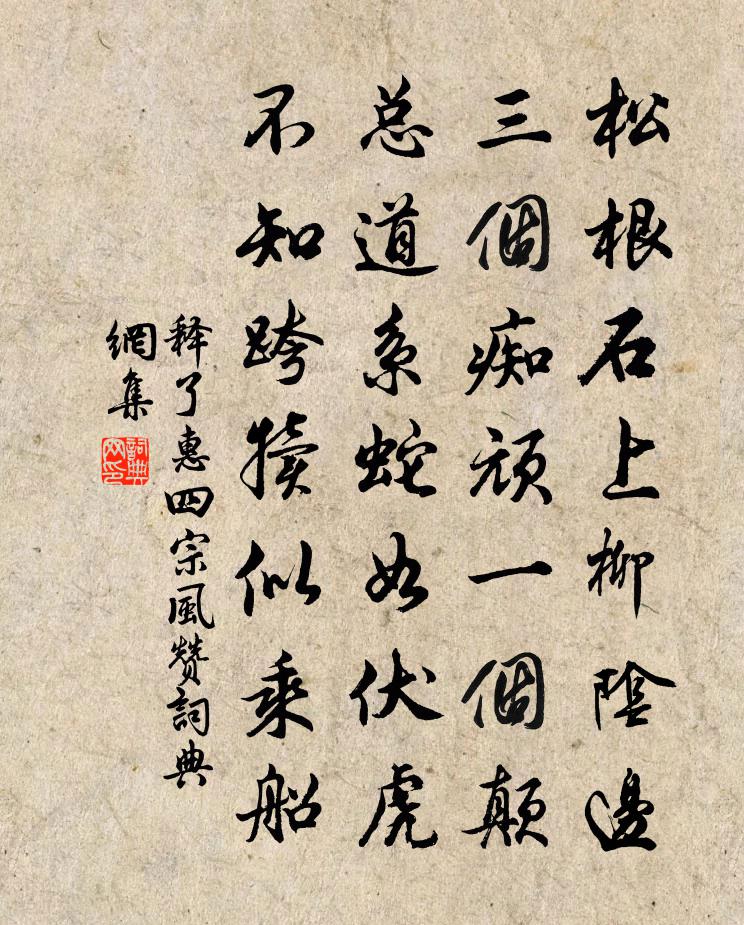 松根石上柳陰邊
三個痴頑一個顛
总道系蛇如伏虎
不知跨犢似乘船
释了惠四宗風贊詞典
網集
詞典
网印